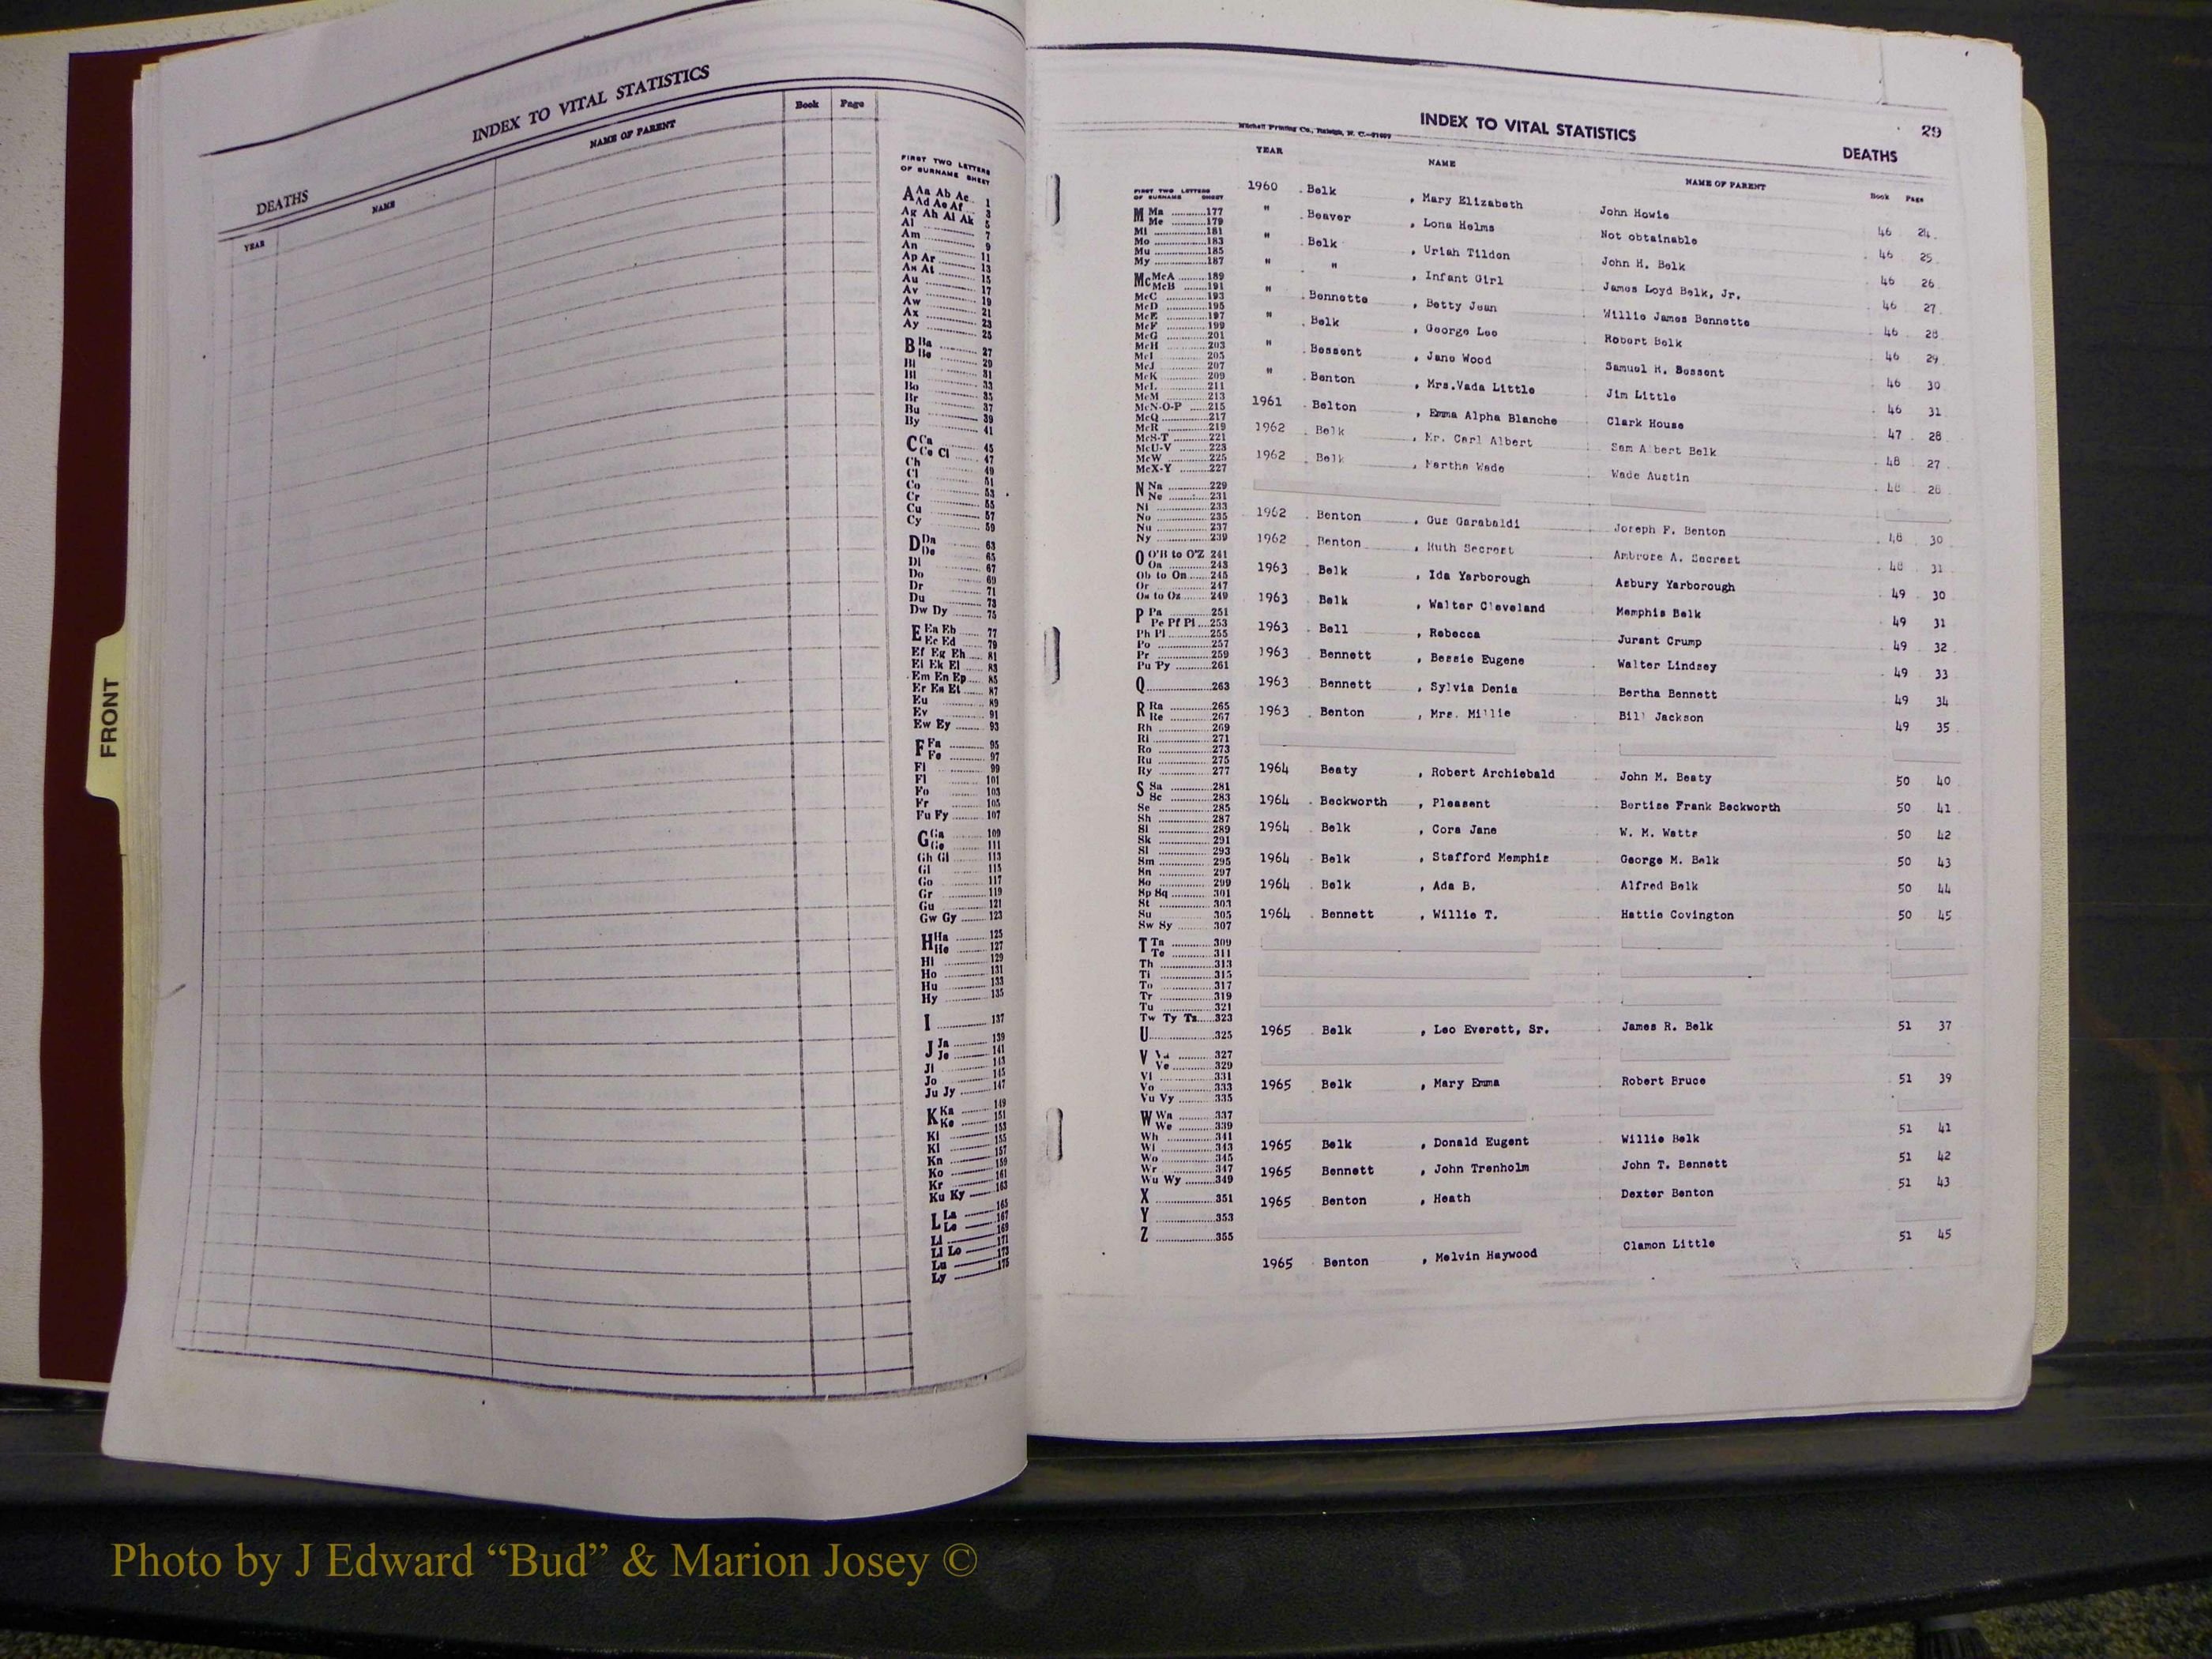 FRONT
INDEX TO VITAL STATISTICS
DEATHS
YEAR NAME NAME OF PARENT Book Page
FIRST TWO LETTERS
OF SURNAME SHEET
A Aa Ab Ac 1
Ad Ae Af 3
Ag Ah Ai Ak 5
Al 7
Am 9
An 11
Ap Ar 13
As At 15
Au 17
Av 19
Aw 21
Ax 23
Ay 25
B Ba 27
Be 29
Bi 31
Bl 33
Bo 35
Br 37
Bu 39
By 41
C Ca 45
Ce Ci 47
Ch 49
Cl 51
Co 53
Cr 55
Cu 57
Cy 59
D Da 63
De 65
Di 67
Do 69
Dr 71
Du 73
Dw Dy 75
E Ea Eb 77
Ec Ed 79
Ef Eg Eh 81
Ei Ek El 83
Em En Ep 85
Er Es Et 87
Eu 89
Ev 91
Ew Ey 93
F Fa 95
Fe 97
Fi 99
Fl 101
Fo 103
Fr 105
Fu Fy 107
G Ga 109
Ge 111
Gh Gi 113
Gl 115
Go 117
Gr 119
Gu 121
Gw Gy 123
H Ha 125
He 127
Hi 129
Ho 131
Hu 133
Hy 135
I 137
J Ja 139
Je 141
Ji 143
Jo 145
Ju Jy 147
K Ka 149
Ke 151
Ki 153
Kl 155
Kn 157
Ko 159
Kr 161
Ku Ky 163
L La 165
Le 167
Li 169
Ll Lo 171
Lu 173
Ly 175
29
INDEX TO VITAL STATISTICS
Mitchell Printing Co., Raleigh, N. C.
DEATHS
YEAR NAME NAME OF PARENT Book Page
FIRST TWO LETTERS
OF SURNAME SHEET
M Ma 177
Me 179
Mi 181
Mo 183
Mu 185
My 187
Mc McA 189
McB 191
McC 193
McD 195
McE 197
McF 199
McG 201
McH 203
McI 205
McJ 207
McK 209
McL 211
McM 213
McN-O-P 215
McQ 217
McR 219
McS-T 221
McU-V 223
McW 225
McX-Y 227
N Na 229
Ne 231
Ni 233
No 235
Nu 237
Ny 239
O O'B to O'Z 241
Oa 243
Ob to On 245
Or 247
Os to Oz 249
P Pa 251
Pe Pf Pi 253
Ph Pl 255
Po 257
Pr 259
Pu Py 261
Q 263
R Ra 265
Re 267
Rh 269
Ri 271
Ro 273
Ru 275
Ry 277
S Sa 281
Sc 283
Se 285
Sh 287
Si 289
Sk 291
Sl 293
Sm 295
Sn 297
So 299
Sp Sq 301
St 303
Su 305
Sw Sy 307
T Ta 309
Te 311
Th 313
Ti 315
To 317
Tr 319
Tu 321
Tw Ty Tz 323
U 325
V Va 327
Ve 329
Vi 331
Vo 333
Vu Vy 335
W Wa 337
We 339
Wh 341
Wi 343
Wo 345
Wr 347
Wu Wy 349
X 351
Y 353
Z 355
1960 Belk , Mary Elizabeth John Howie 46 24
" Beaver , Lona Helms Not obtainable 46 25
" Belk , Uriah Tildon John H. Belk 46 26
" " , Infant Girl James Loyd Belk, Jr. 46 27
" Bennette , Betty Jean Willie James Bennette 46 28
" Belk , George Lee Robert Belk 46 29
" Bessent , Jane Wood Samuel H. Bessent 46 30
" Benton , Mrs.Vada Little Jim Little 46 31
1961 Belton , Emma Alpha Blanche Clark House 47 28
1962 Belk , Mr. Carl Albert Sam Albert Belk 48 27
1962 Belk , Martha Wade Wade Austin 48 28
1962 Benton , Gus Garabaldi Joseph F. Benton 48 30
1962 Benton , Ruth Secrest Ambrose A. Secrest 48 31
1963 Belk , Ida Yarborough Asbury Yarborough 49 30
1963 Belk , Walter Cleveland Memphis Belk 49 31
1963 Bell , Rebecca Jurant Crump 49 32
1963 Bennett , Bessie Eugene Walter Lindsey 49 33
1963 Bennett , Sylvia Denia Bertha Bennett 49 34
1963 Benton , Mrs. Millie Bill Jackson 49 35
1964 Beaty , Robert Archiebald John M. Beaty 50 40
1964 Beckworth , Pleasent Bertise Frank Beckworth 50 41
1964 Belk , Cora Jane W. M. Watts 50 42
1964 Belk , Stafford Memphis George M. Belk 50 43
1964 Belk , Ada B. Alfred Belk 50 44
1964 Bennett , Willie T. Hattie Covington 50 45
1965 Belk , Leo Everett, Sr. James R. Belk 51 37
1965 Belk , Mary Emma Robert Bruce 51 39
1965 Belk , Donald Eugent Willie Belk 51 41
1965 Bennett , John Trenholm John T. Bennett 51 42
1965 Benton , Heath Dexter Benton 51 43
1965 Benton , Melvin Haywood Clamon Little 51 45
Photo by J Edward “Bud” & Marion Josey ©